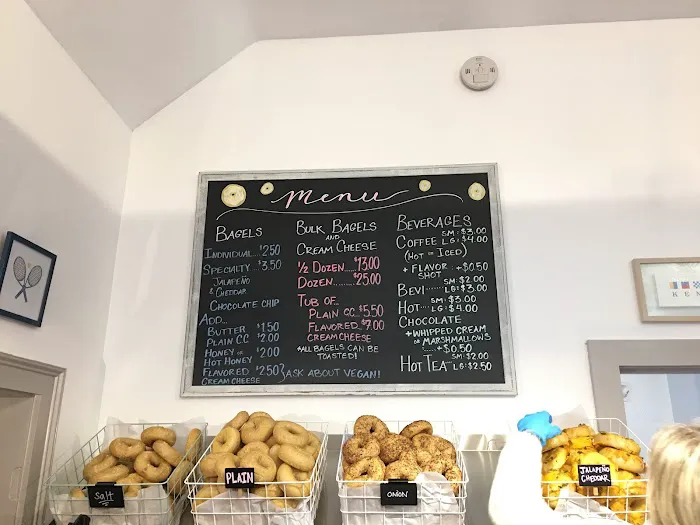 Menu
BAGELS
INDIVIDUAL....$2.50
SPECIALTY...$3.50
JALAPEÑO
& CHEDDAR
CHOCOLATE CHIP
ADD...
BUTTER $1.50
PLAIN CC $2.00
HONEY OR $2.00
HOT HONEY
FLAVORED $2.50
CREAM CHEESE
ASK ABOUT VEGAN!
BULK BAGELS
AND
CREAM CHEESE
½ DOZEN.....$13.00
DOZEN........$25.00
TUB OF...
PLAIN CC..$5.50
FLAVORED..$7.00
CREAM CHEESE
*ALL BAGELS CAN BE
TOASTED!
BEVERAGES
SM: $3.00
COFFEE LG: $4.00
(HOT OR ICED)
+ FLAVOR SHOT - +$0.50
SM: $2.00
BEVI...... LG: $3.00
SM: $3.00
HOT.... LG: $4.00
CHOCOLATE
+ WHIPPED CREAM
OR MARSHMALLOWS
+$0.50
SM: $2.00
HOT TEA LG: $2.50
salt
PLAIN
ONION
JALAPEÑO
CHEDDAR